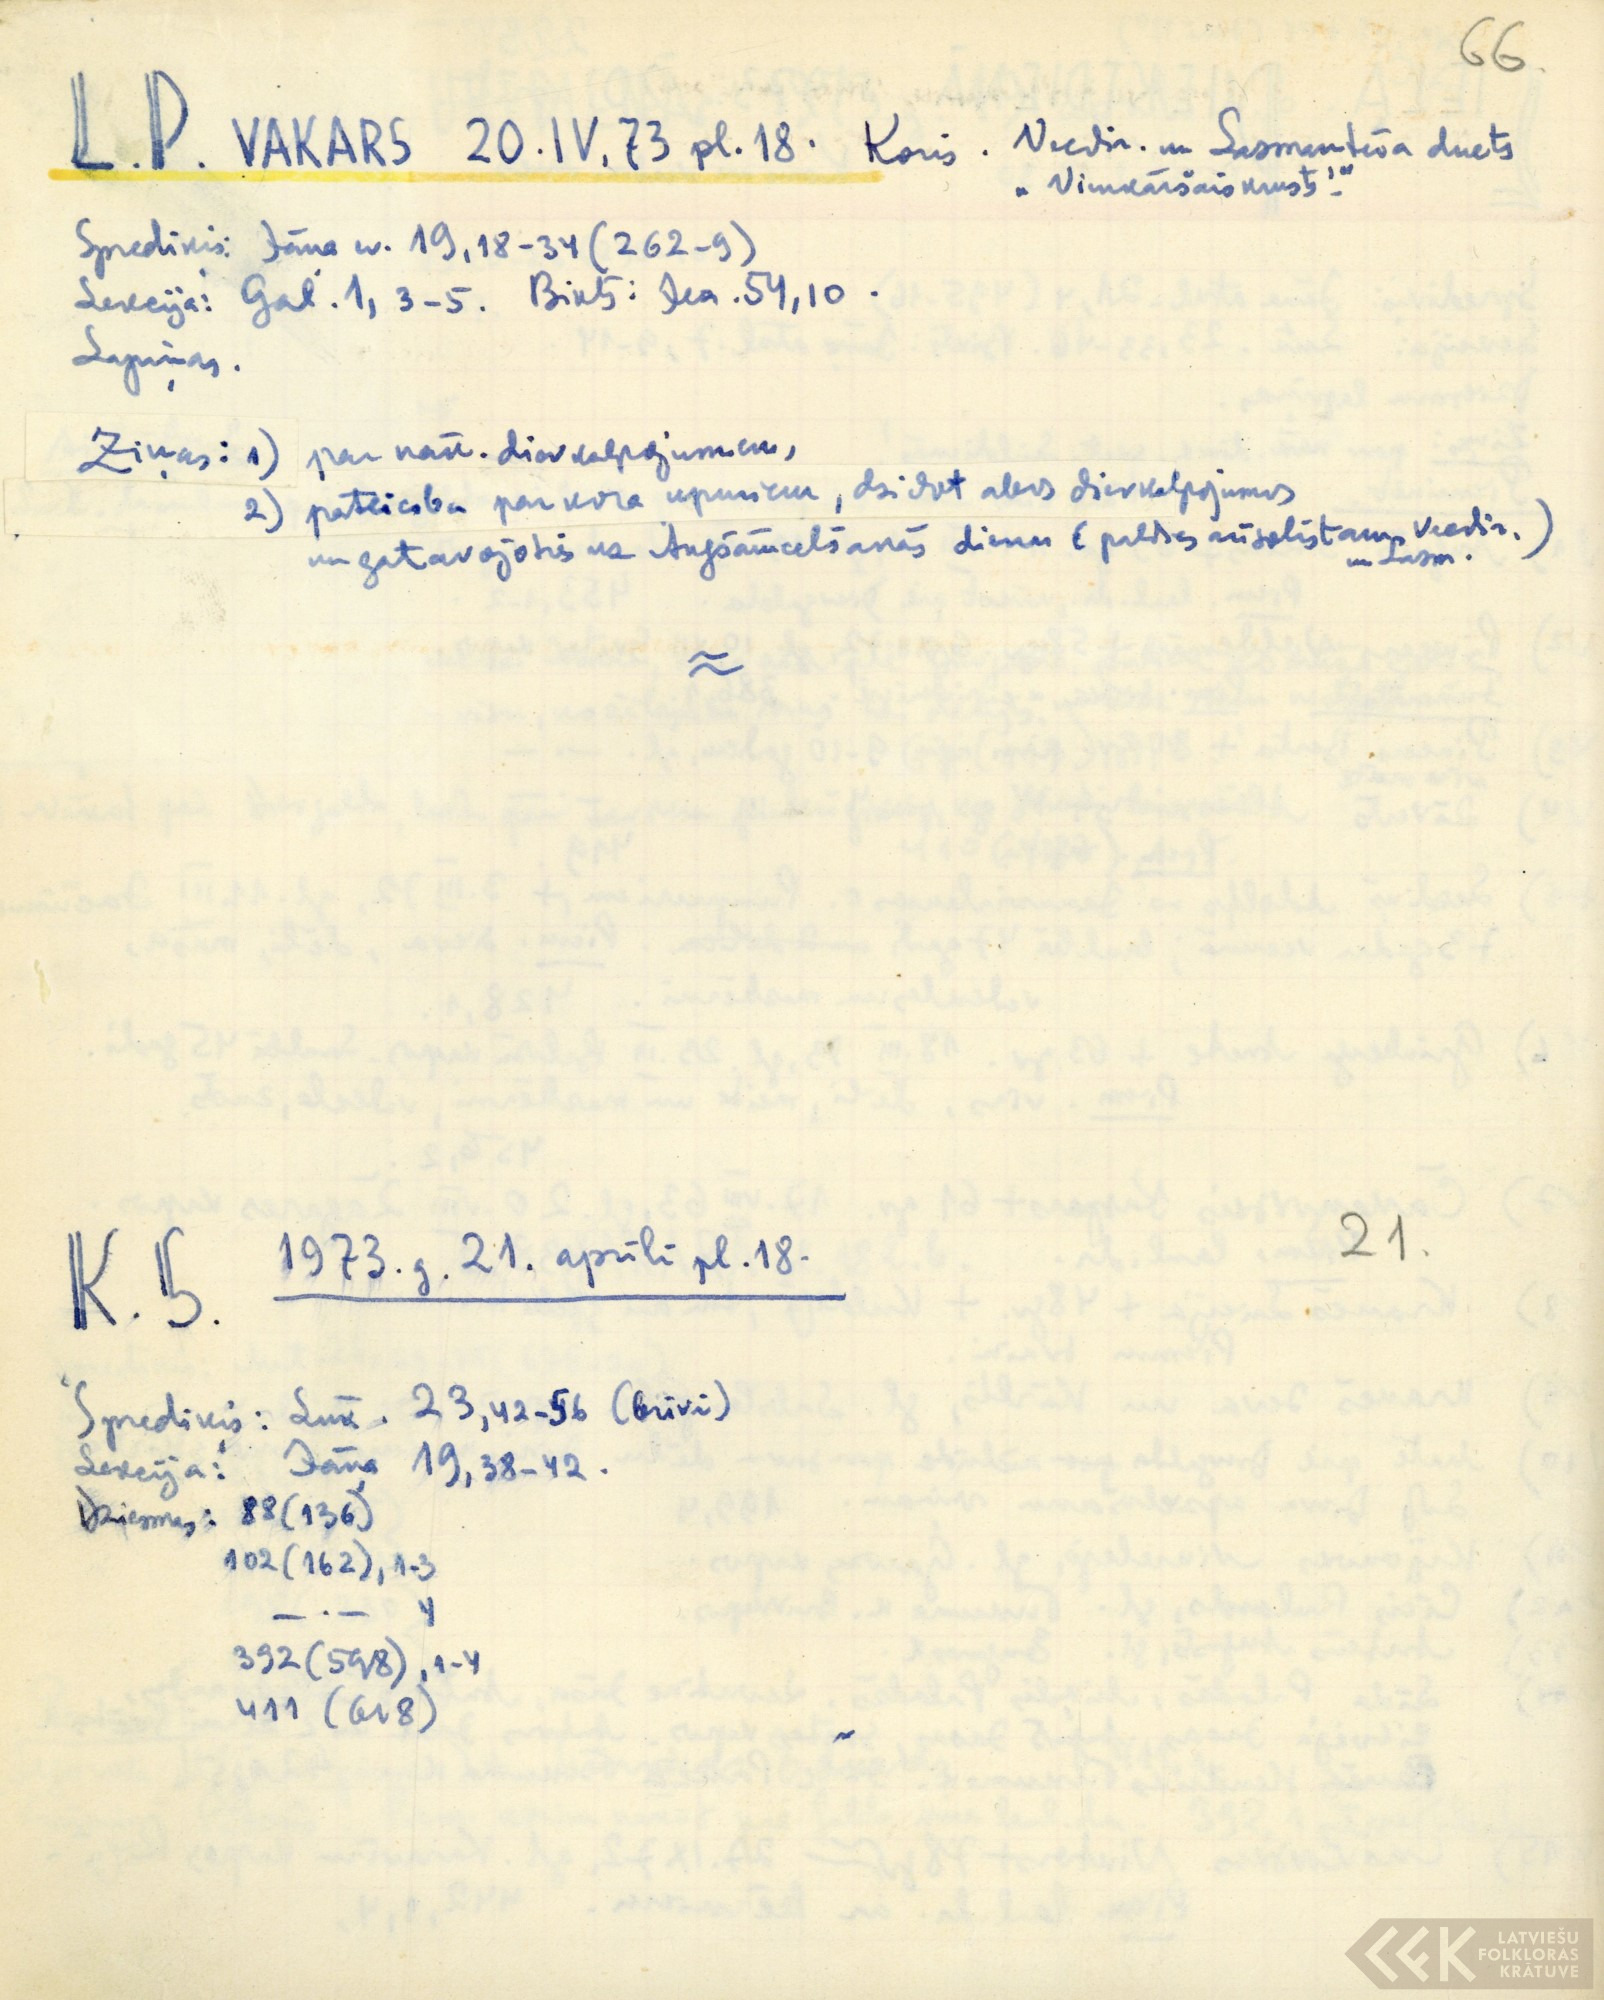 66.
L.P. VAKARS 20.IV.73 pl.18. Koris. Veedir. un Lasmantēva duets
"Vienkāršais krusts!"
Sprediķis: Jāņa ev. 19,18-34 (262-9)
Lekcija: Gal. 1, 3-5. Bikts: Jes. 54,10.
Lapiņas.
Ziņas: 1) par nāk. dievkalpojumiem,
2) pateicība par kora upuriem, dziedot abos dievkalpojumos
un gatavojoties uz Augšāmcelšanās dienu (paldies arī solistam Veedir.)
un Lasm.
≈
K.S. 1973.g. 21. aprīlī pl.18.
21.
Sprediķis: Lūk. 23,42-56 (brīvi)
Lekcija: Jāņa 19,38-42.
Dziesmas: 88(136)
102(162), 1-3
— . — 4
392(598), 1-4
411 (618)
~
LATVIEŠU
FOLKLORAS
KRĀTUVE